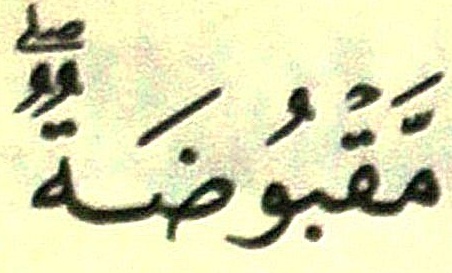 مَّقْبُوضَةٌۖ